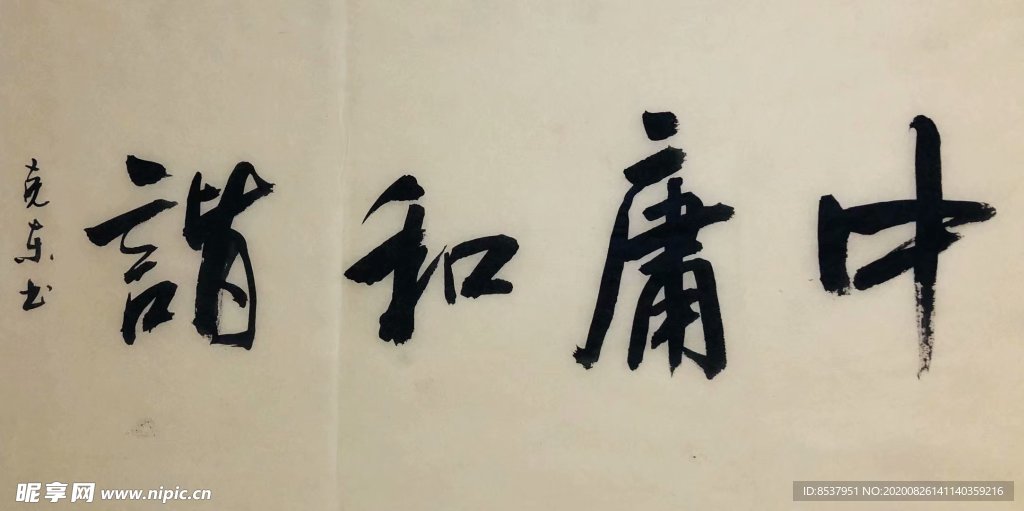 中庸和諧
克东书
昵享网 www.nipic.cn
ID:8537951 NO:20200826141140359216